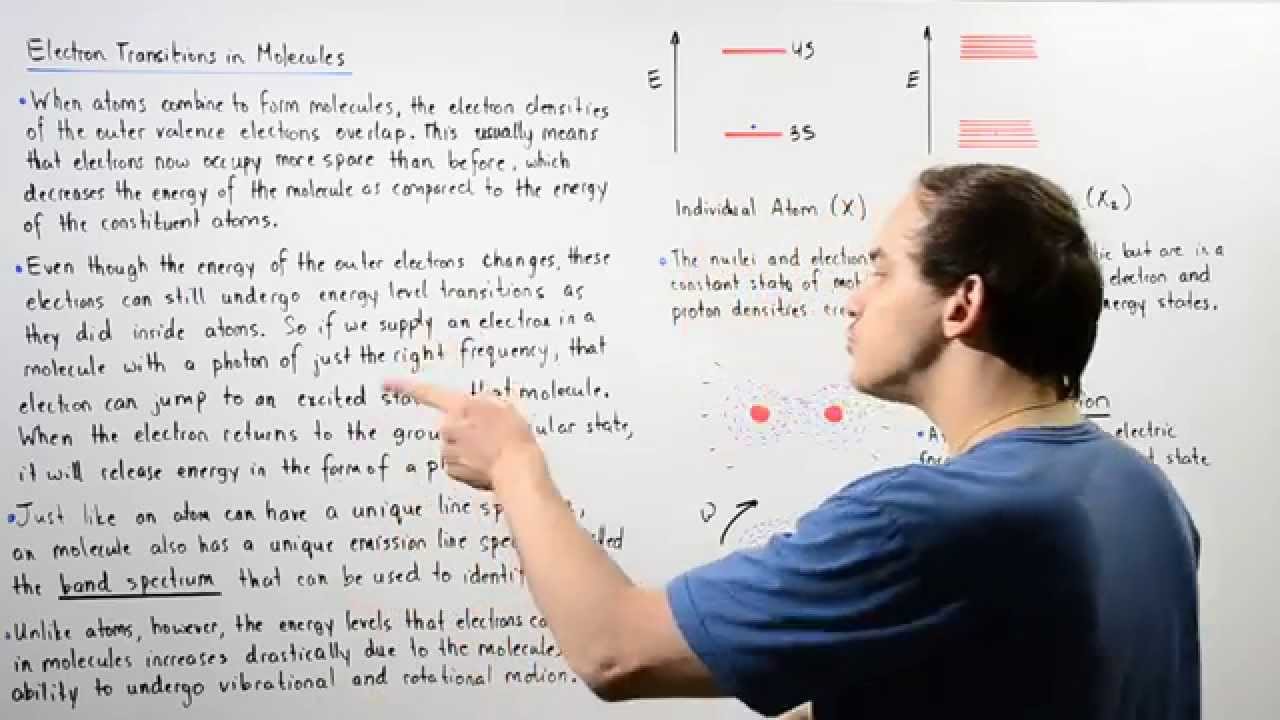 Electron Transitions in Molecules
• When atoms combine to form molecules, the electron densities
of the outer valence elections overlap. This usually means
that electrons now occupy more space than before, which
decreases the energy of the molecule as compared to the energy
of the constituent atoms.
• Even though the energy of the outer electrons changes, these
electrons can still undergo energy level transitions as
they did inside atoms. So if we supply an electron in a
molecule with a photon of just the right frequency, that
electron can jump to an excited that molecule.
When the electron returns to the state,
it will release energy in the form of a
• Just like an atom can have a unique line
an molecule also has a unique emission line
the band spectrum that can be used to
• Unlike atoms, however, the energy levels that electrons
in molecules increases drastically due to the molecules
ability to undergo vibrational and rotational motion.
E
4S
3S
Individual Atom (X)
E
(X₂)
• The nuclei and but are in a
constant state of electron and
proton densities states.
υ
• electric
state